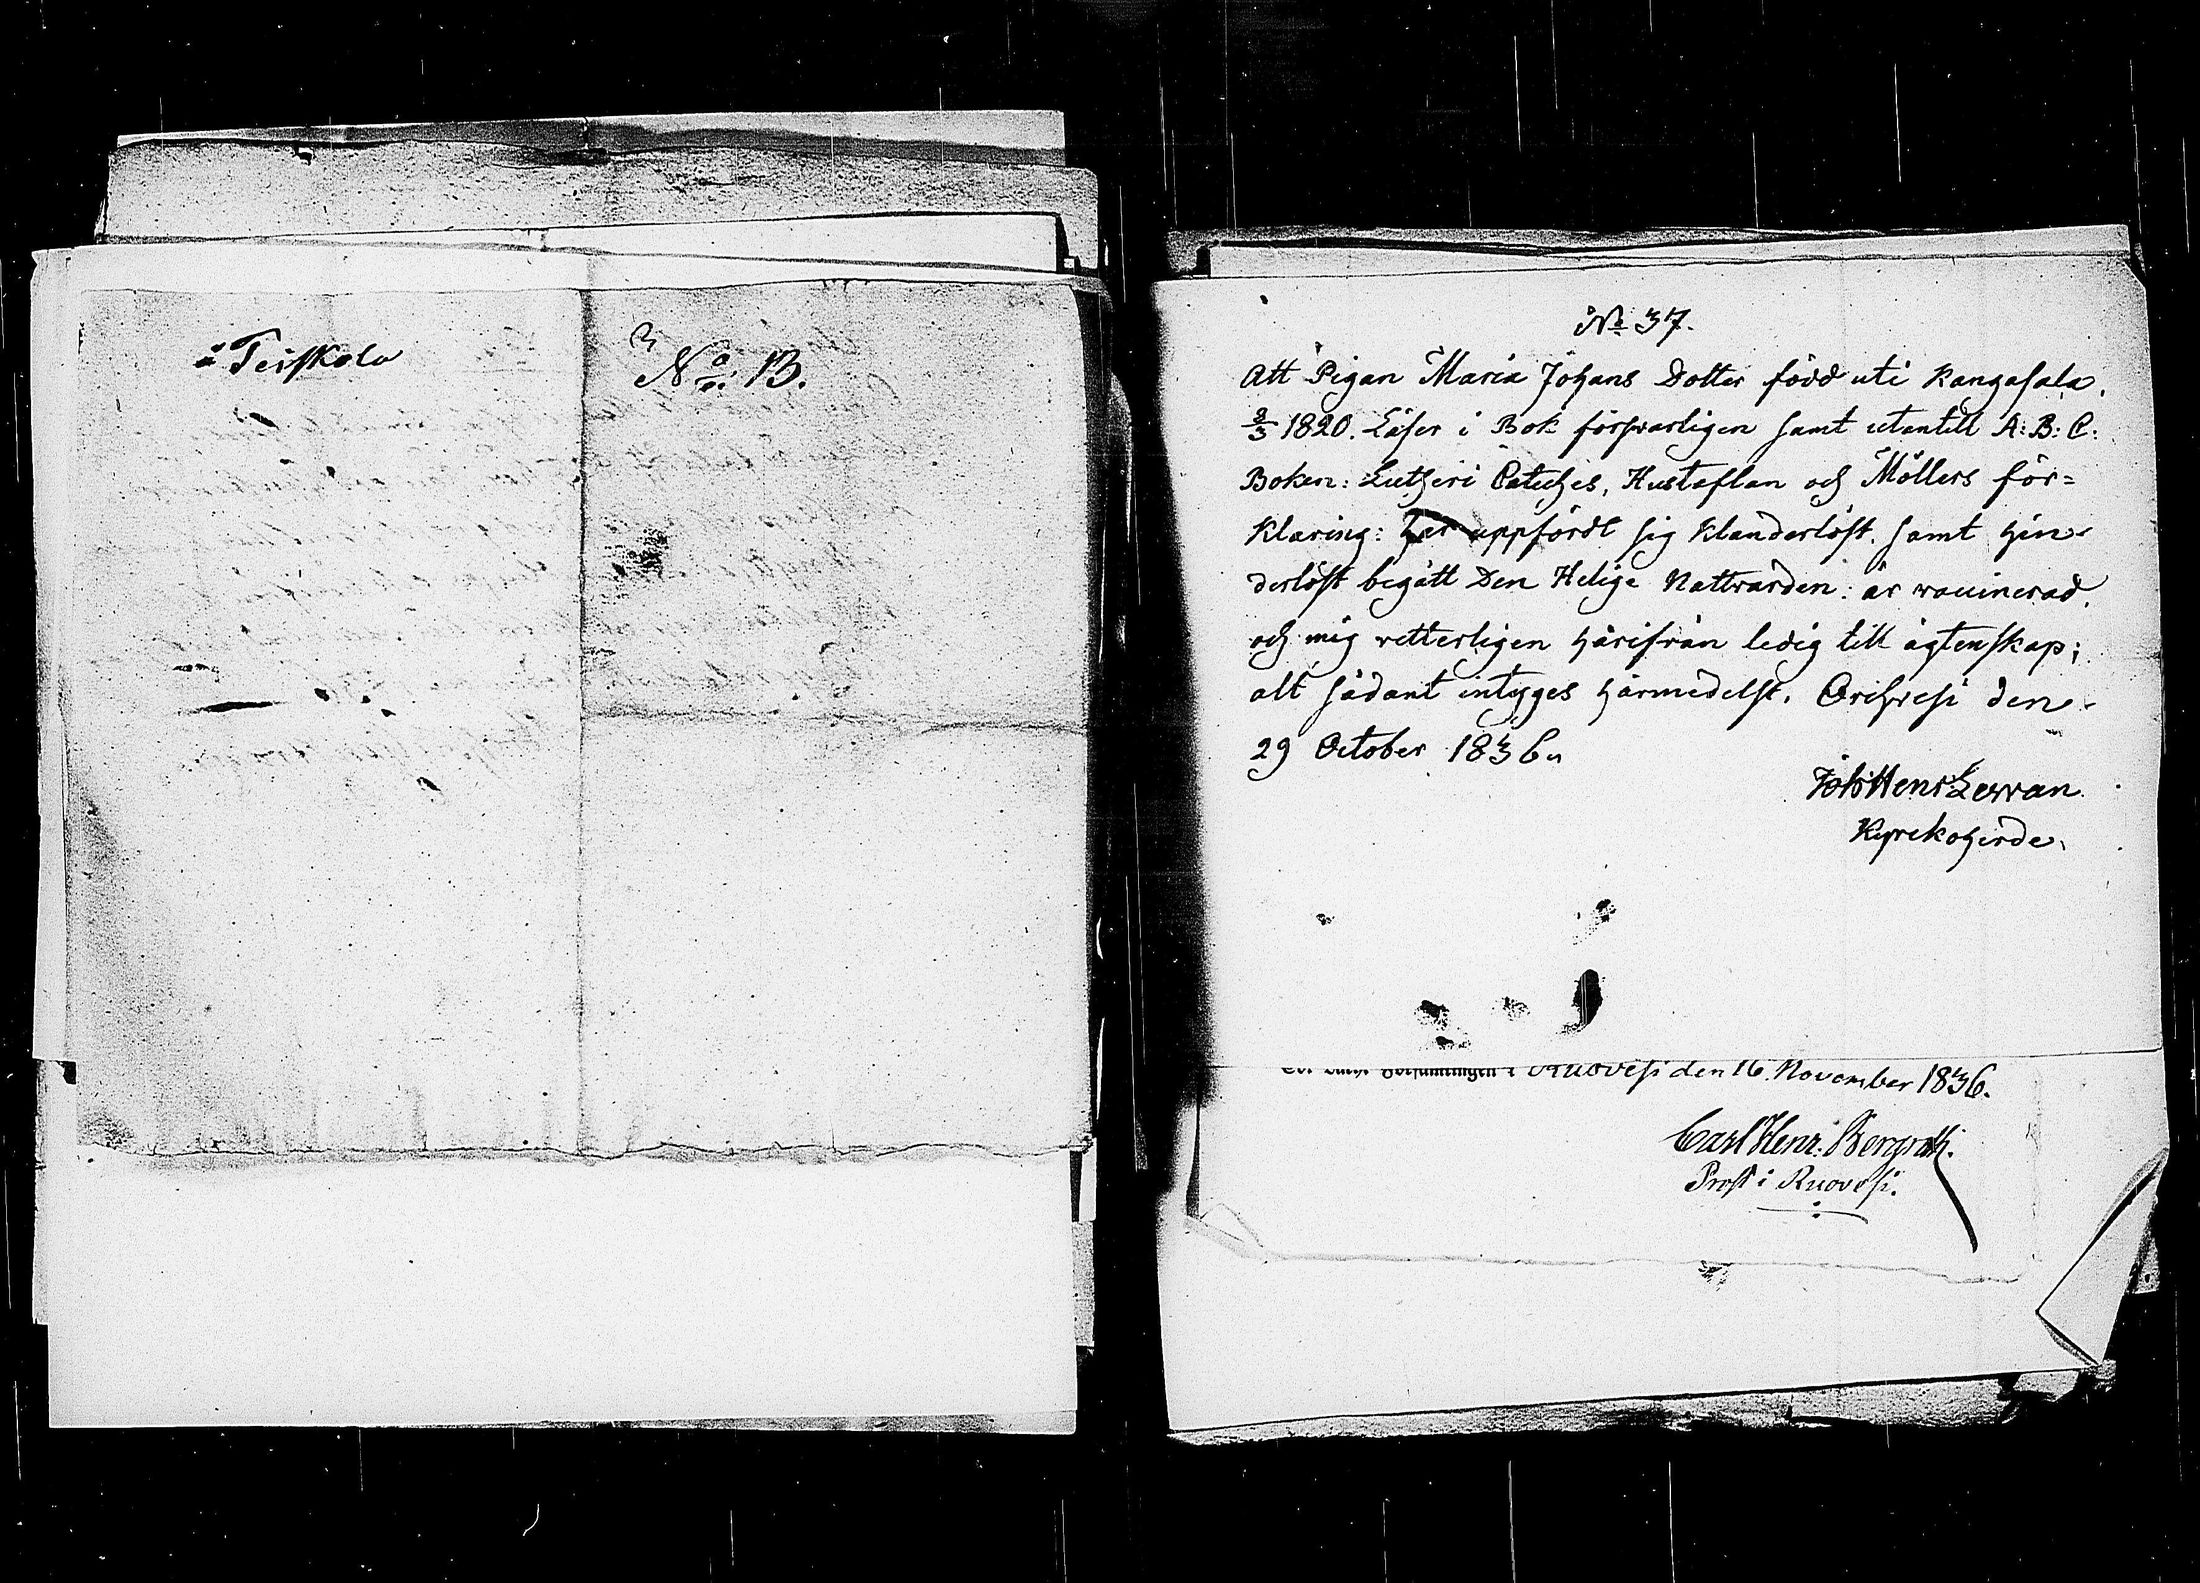 å Teiskola
No: 13.
No 37.
Att Pigan Maria Johans Dotter född uti Kangasala,
2/3 1820. Läser i Bok försvarligen samt utantill A:B:C:
Boken: Lutheri Cateches, Hustaflan och Möllers för=
klaring: har uppfördt sig klanderlöst, samt hin-
derlöst begått Den Helige Nattvarden: är vaccinerad,
och mig vetterligen härifrån ledig till ägtenskap;
alt sådant intygges härmedelst. Orihvesi den
29 October 1836.
Joh: Henr
Kyrckoherde.
Ev. Luth. Församlingen i Ruovesi den 16 November 1836.
Carl Henr: Bergroth.
Prost i Ruovesi.